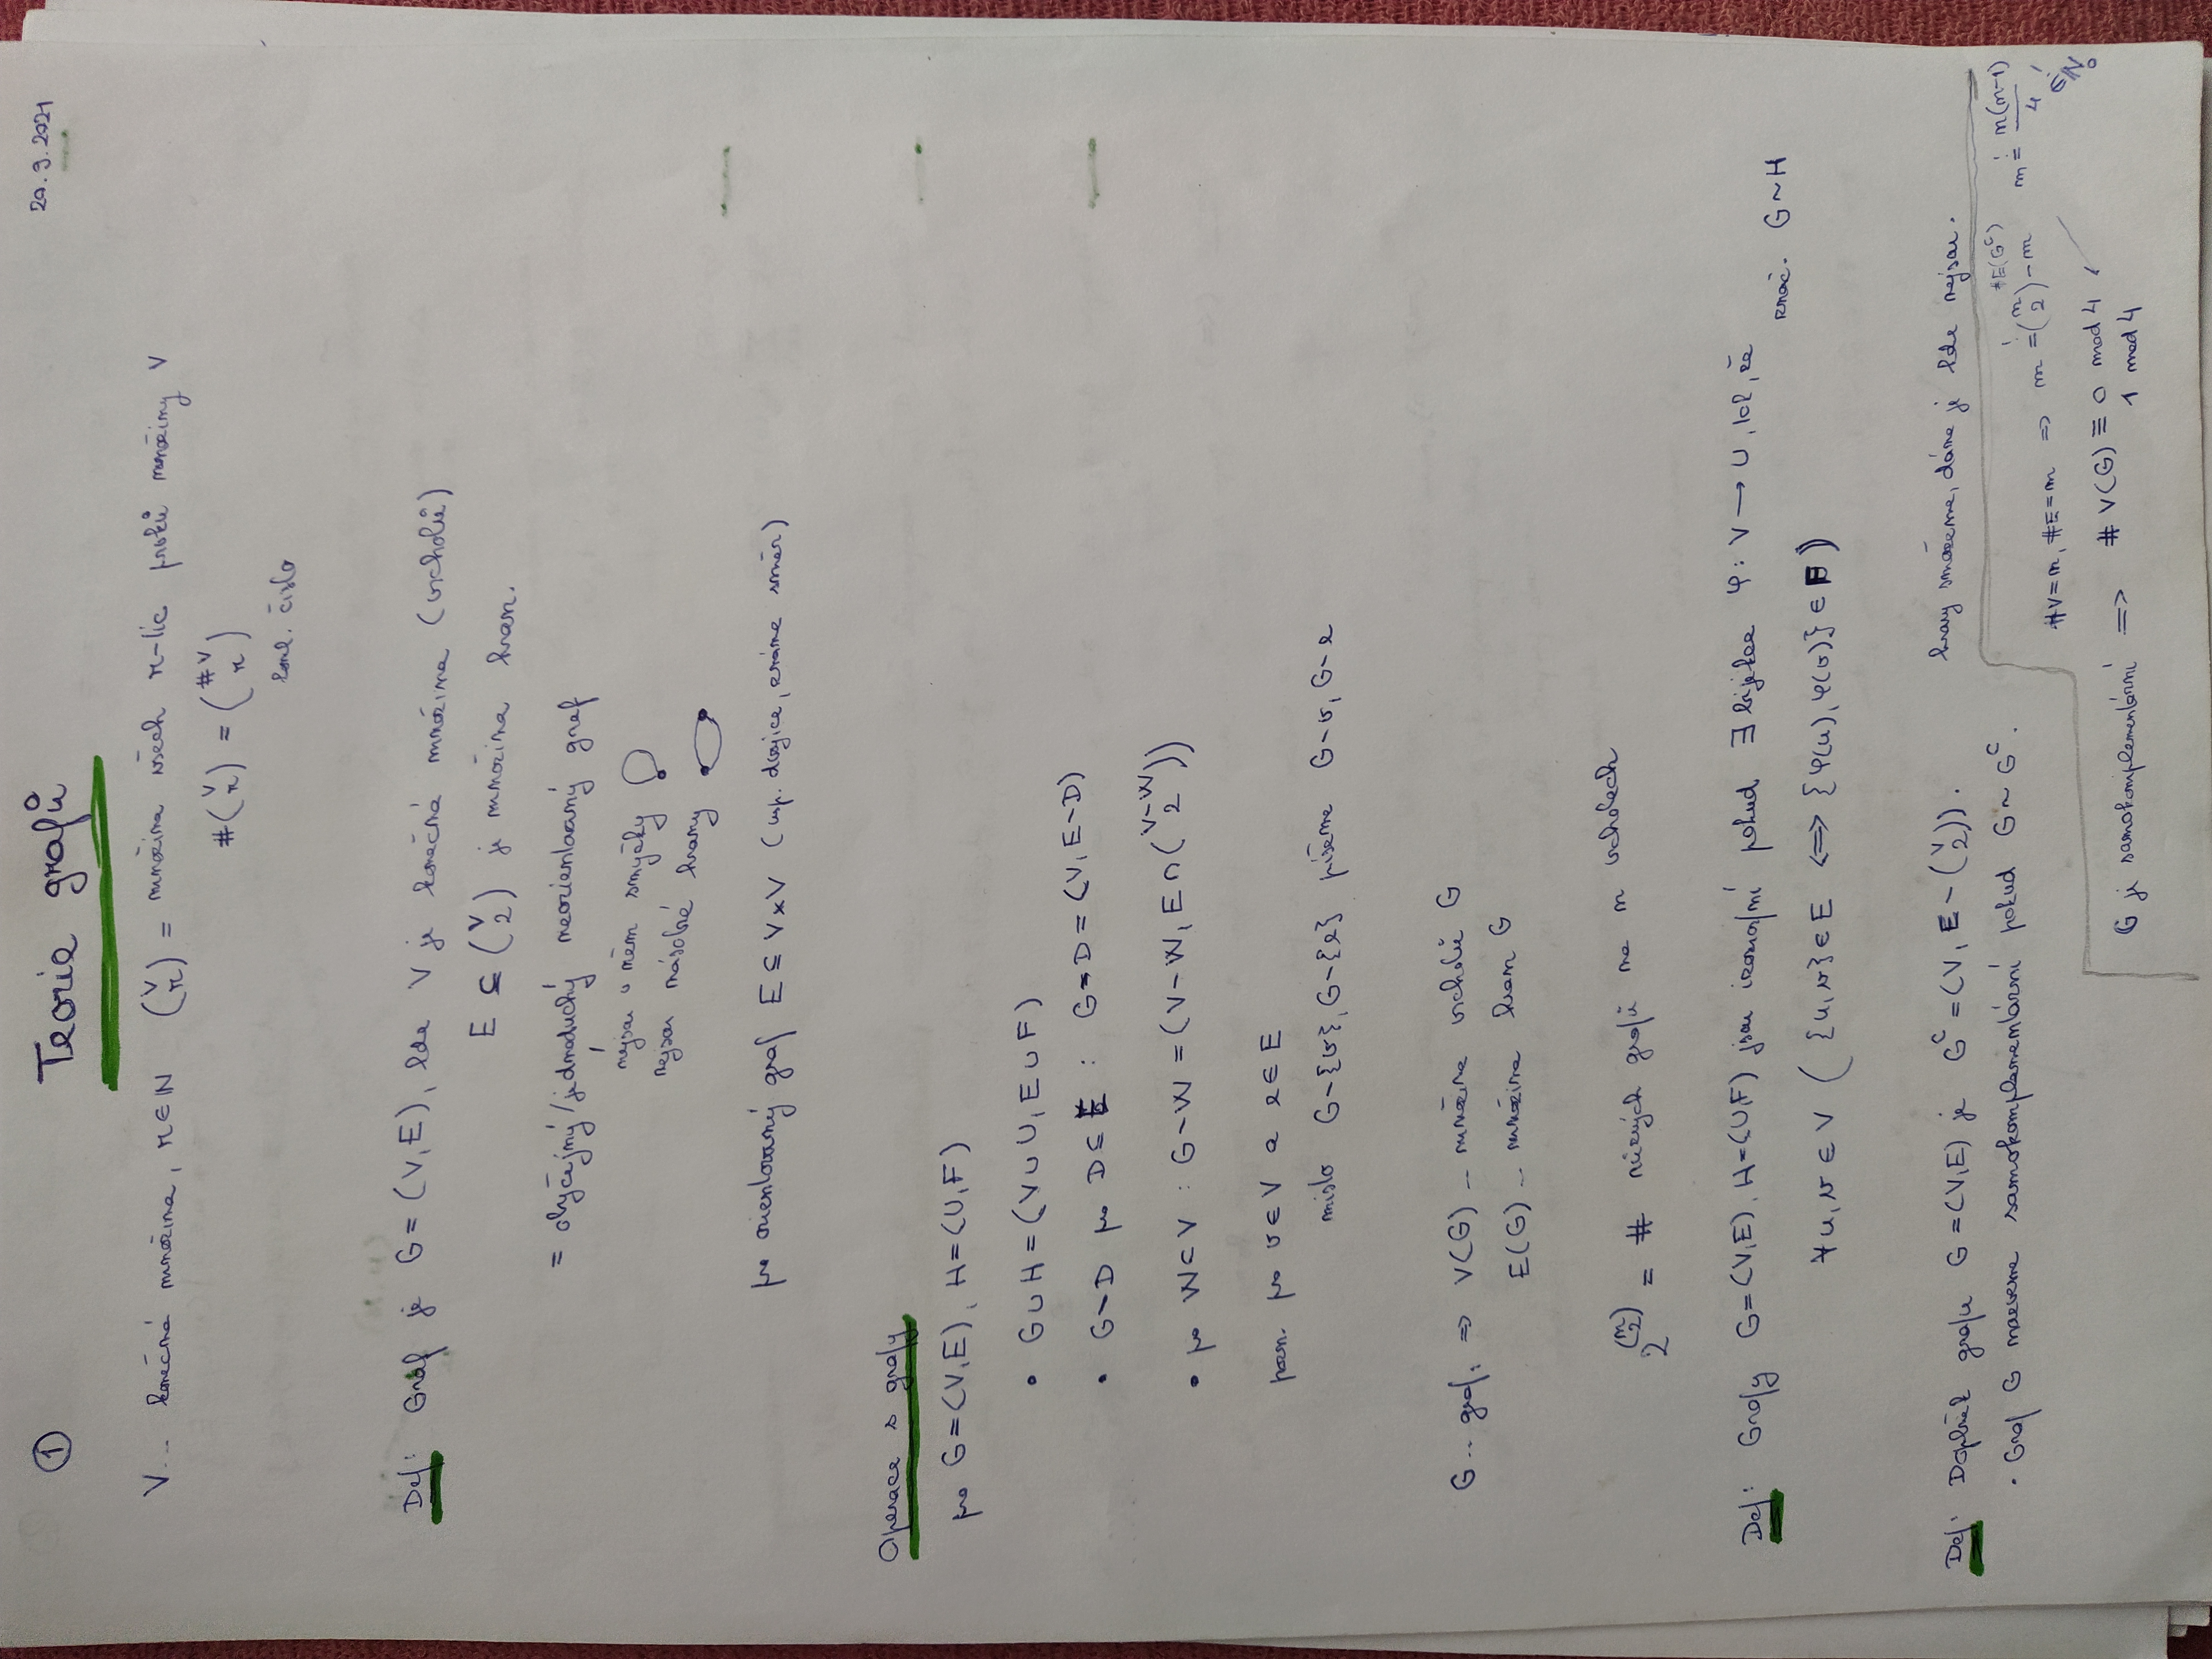 ① Teorie grafů 20.9.2021
V... konečná množina, r∈N (V r) = množina všech r-tic prvků množiny V
#(V r) = (#V r)
komb. číslo
Def: Graf je G=(V,E), kde V je konečná množina (vrcholů)
E ⊆ (V 2) je množina hran.
= obyčejný/jednoduchý neorientovaný graf
nejsou v něm smyčky
nejsou násobné hrany
pro orientovaný graf E ⊆ V×V (usp. dvojice, známe směr)
Operace s grafy
pro G=(V,E), H=(U,F)
• G∪H = (V∪U, E∪F)
• G-D pro D⊆E : G-D = (V, E-D)
• pro W⊂V : G-W = (V-W, E∩(V-W 2))
pozn. pro v∈V a e∈E
místo G-{v}, G-{e} píšeme G-v, G-e
G... graf: ⇒ V(G) -- množina vrcholů G
E(G) -- množina hran G
2^(n 2) = # různých grafů na n vrcholech
Def: Grafy G=(V,E), H=(U,F) jsou izomorfní pokud ∃ bijekce φ: V → U, tak, že
∀u,v ∈ V ( {u,v}∈E ⟺ {φ(u), φ(v)}∈F) znač. G~H
Def: Doplněk grafu G=(V,E) je Gᶜ=(V, E-(V 2)). hrany smažeme, dáme je kde nejsou.
• Graf G nazveme samokomplementární pokud G~Gᶜ.
#E(Gᶜ)
#V=n, #E=m ⇒ m = (n 2)-m m = n(n-1)/4 ∈ℕ₀
G je samokomplementární ⇒ #V(G) ≡ 0 mod 4
1 mod 4